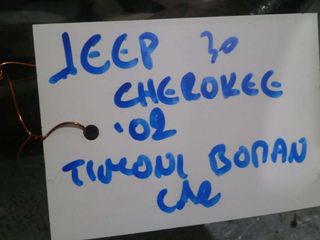 JEEP 30
CHEROKEE
'02
TIMONI BOMAN
CAR